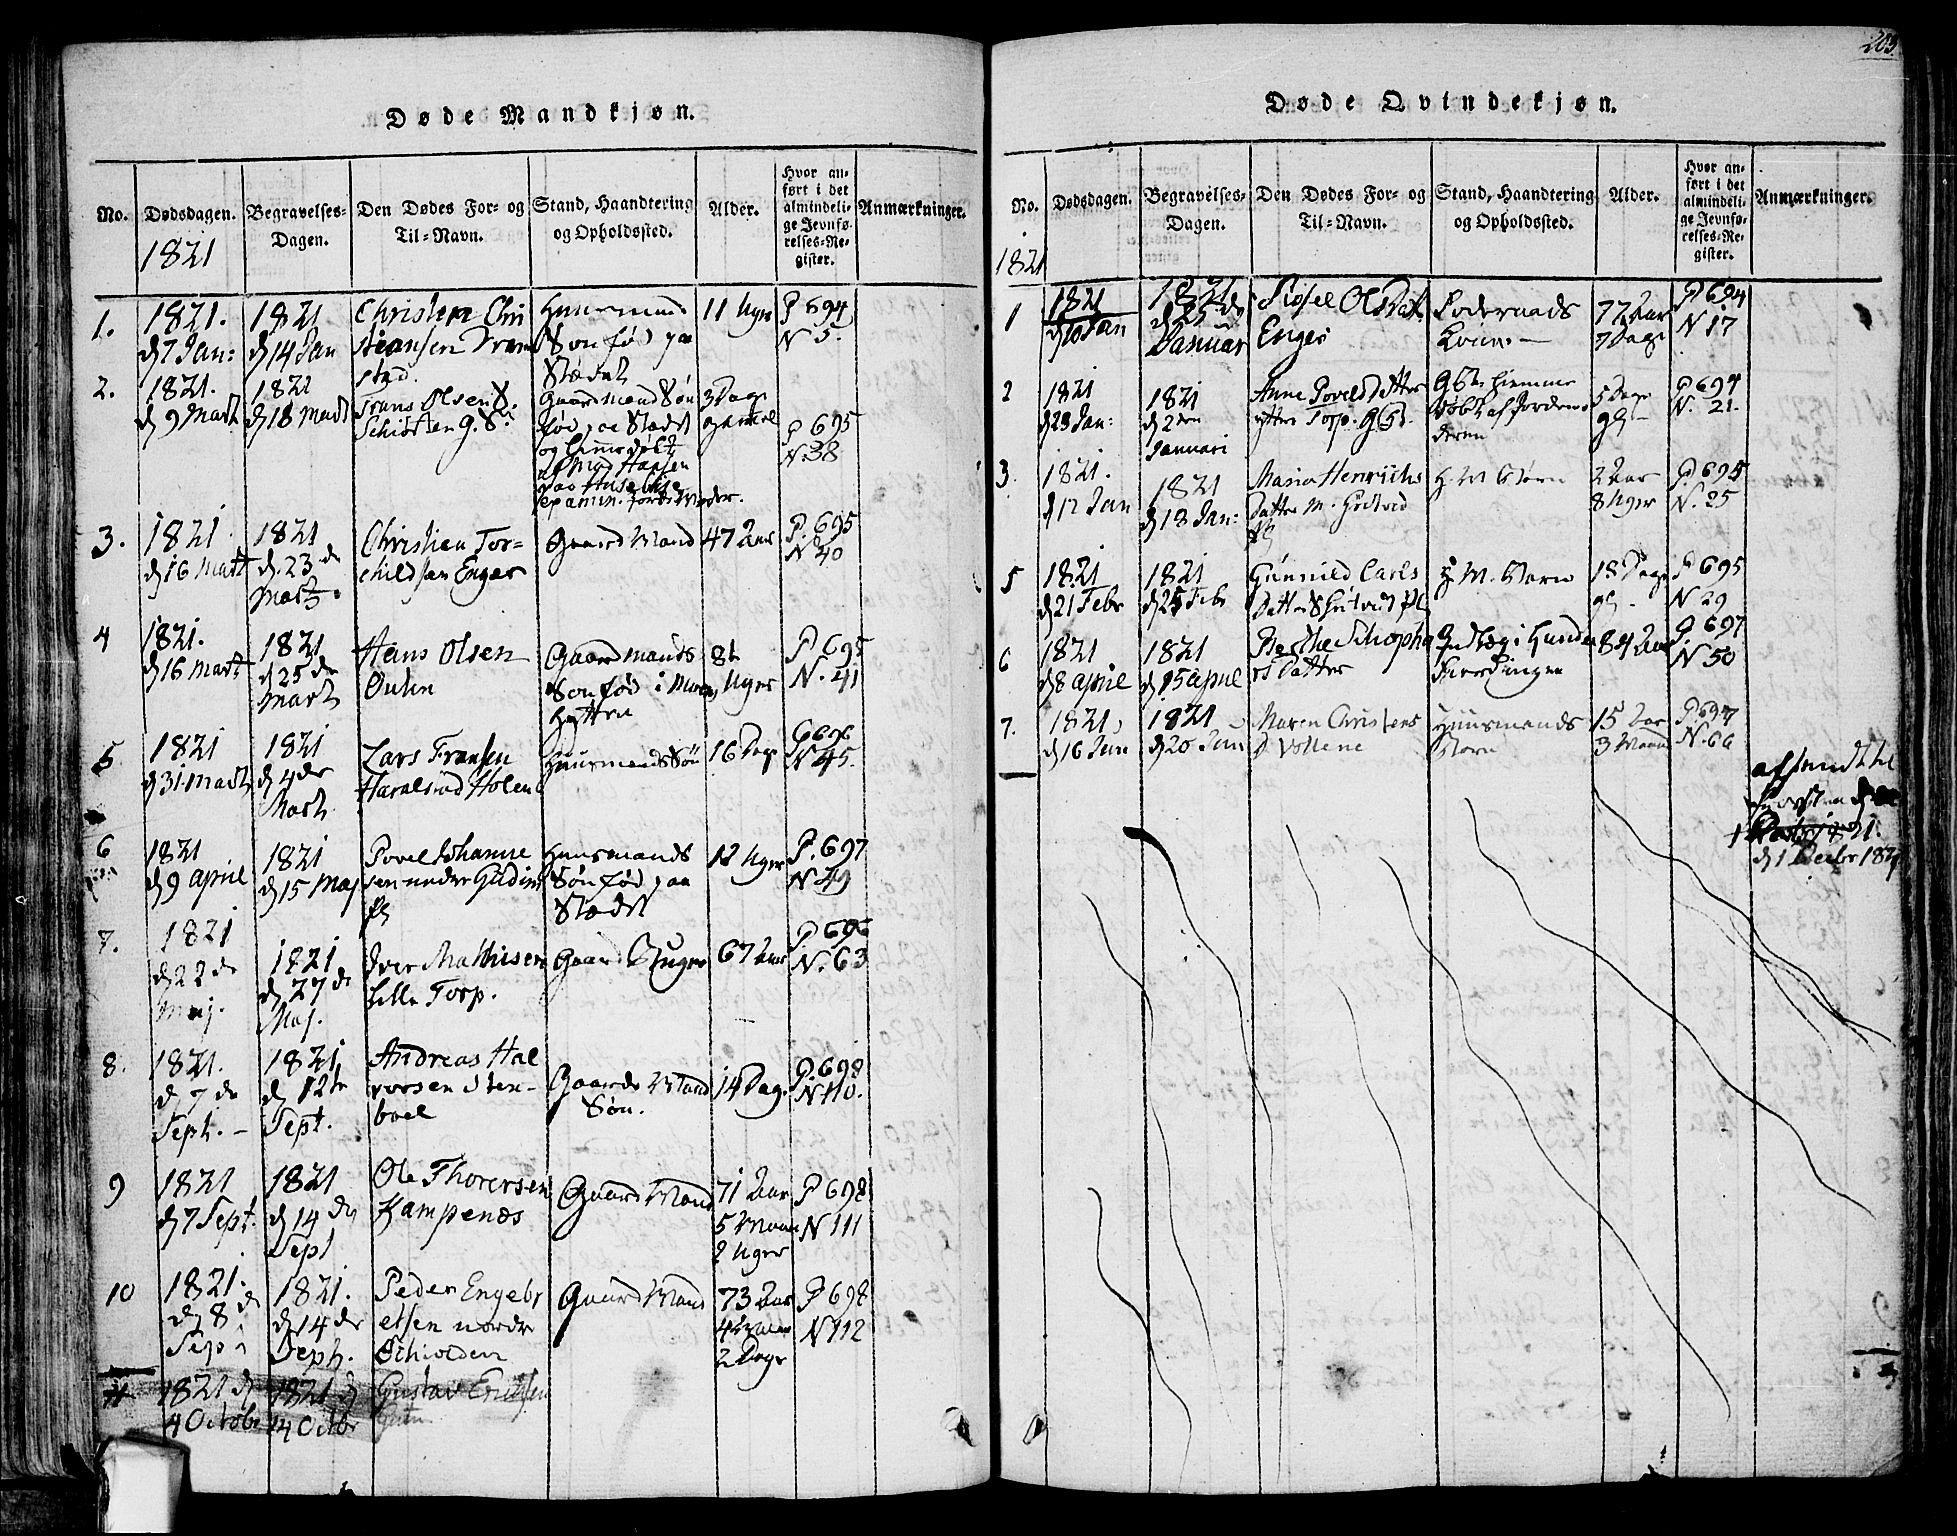 203.
Døde Mandkjøn.
No.
Dødsdagen.
1821
Begravelses-
Dagen.
Den Dødes For- og
Til-Navn.
Stand, Haandtering
og Opholdssted.
Alder.
Hvor an-
ført i det
almindeli-
ge Jevnfø-
relses-Re-
gister.
Anmærkninger.
1.
1821.
d 7 Jan:
1821
d 14 Jan
Christen Chri
stiansen
stad.
Huusmands
Søn fød paa
Stædet
11 Uger
P 694
N 5.
2.
1821.
d 9 Martz
1821
d 18 Martz
Frans Olsen S.
G. S.
Gaardmand Søn
fød paa Stædet
og
Hansen
3 Dage
gammel
P 695
N. 38
3.
1821.
d 16 Martz
1821
d. 23 de
Martz.
Christien Tor=
childsen Enger
Gaard Mand
47 Aar
P. 695
N 40
4
1821.
d 16 Martz
1821
d 25 de
Martz
Hans Olsen
Gaardmands
Søn fød i
Hytten
8
Uger
P 695
N. 41
5
1821
d 31. Martz
1821
d 4 de
Martz
Lars Fransen
Haralstad Holen
Huusmands Søn
16 Dage
P 696
N 45.
6
1821
d 9 April
1821
d 15 Maj
Povel Johanne
sen nedre Gudim
Pl
Huusmands
Søn fød paa
Stædet
12 Uger
P. 697
N 49
7.
1821
d 22 de
Maj.
1821
d 27 de
Maj.
Iver Mathisen
Lille Torp.
Gaard Bruger
67 Aar
P. 696
N. 63
8.
1821.
d 7 de
Sept. –
1821.
d 12te
Sept.
Andreas Hal
vorsen Sten-
boel
Gaards Mand
Søn.
14 Dag.
P. 698
N 110.
9
1821
d 7 Sept.
1821
d 14 de
Sept
Ole Thorersen
Kampenæs
Gaard Mand
71 Aar
5 Maan
2 Uger
P 698
N 111
10
1821.
d 8 de
Sep
1821.
d 14 de
Sept.
Peder Engebr
etsen nordre
Skiolden
Gaard Mand
73 Aar
2 Dage
P 698
N 112
11
1821 d
4 Octobr
1821 d
14 Octbr
Gustav Ericksen
Døde Qvindekjøn.
No.
1821
Dødsdagen.
Begravelses-
Dagen.
Den Dødes For- og
Til-Navn.
Stand, Haandtering
og Opholdssted.
Alder.
Hvor an-
ført i det
almindeli-
ge Jevnfø-
relses-Re-
gister.
Anmærkninger.
1
1821
d 10 Jan
1821
d 25 de
Januar
Sissel Olsdat.
Enger
Foderaads
Kone –
77 Aar
7 Dage
P 694
N 17
2
1821
d 23 Jan:
1821
d 2 den
Januari
Anne Povelsdatter
Torp. G.
hiemme
døbt af Jordemo
deren
5 Dage
gl –
P 694
N. 21.
3.
1821.
d 12 Jan
1821
d 18 Jan:
Maria Henrichs
Datter
Pl
H. M. Børn
2 Aar
8 Uger
P. 695
N. 25
5
1821
d 21 Febr
1821
d 25 Febr
Gunnild Carls
Datter Pl
H M. Barn
18 Dage
gl –
P 695
N 29
6
1821
d 8 April
1821
d 15 April
Berthe Schopha
rs Datter
Indlæg i Hunde
Fierdingen
84 Aar
P. 697
N 50
7.
1821
d 16 Jun
1821
d 20 Jun
Maren Christens
D Vollene
Huusmands
Barn
15 Aar
3 Maan
P 697
N. 66
afsendt til
d 1 Decbr 1821